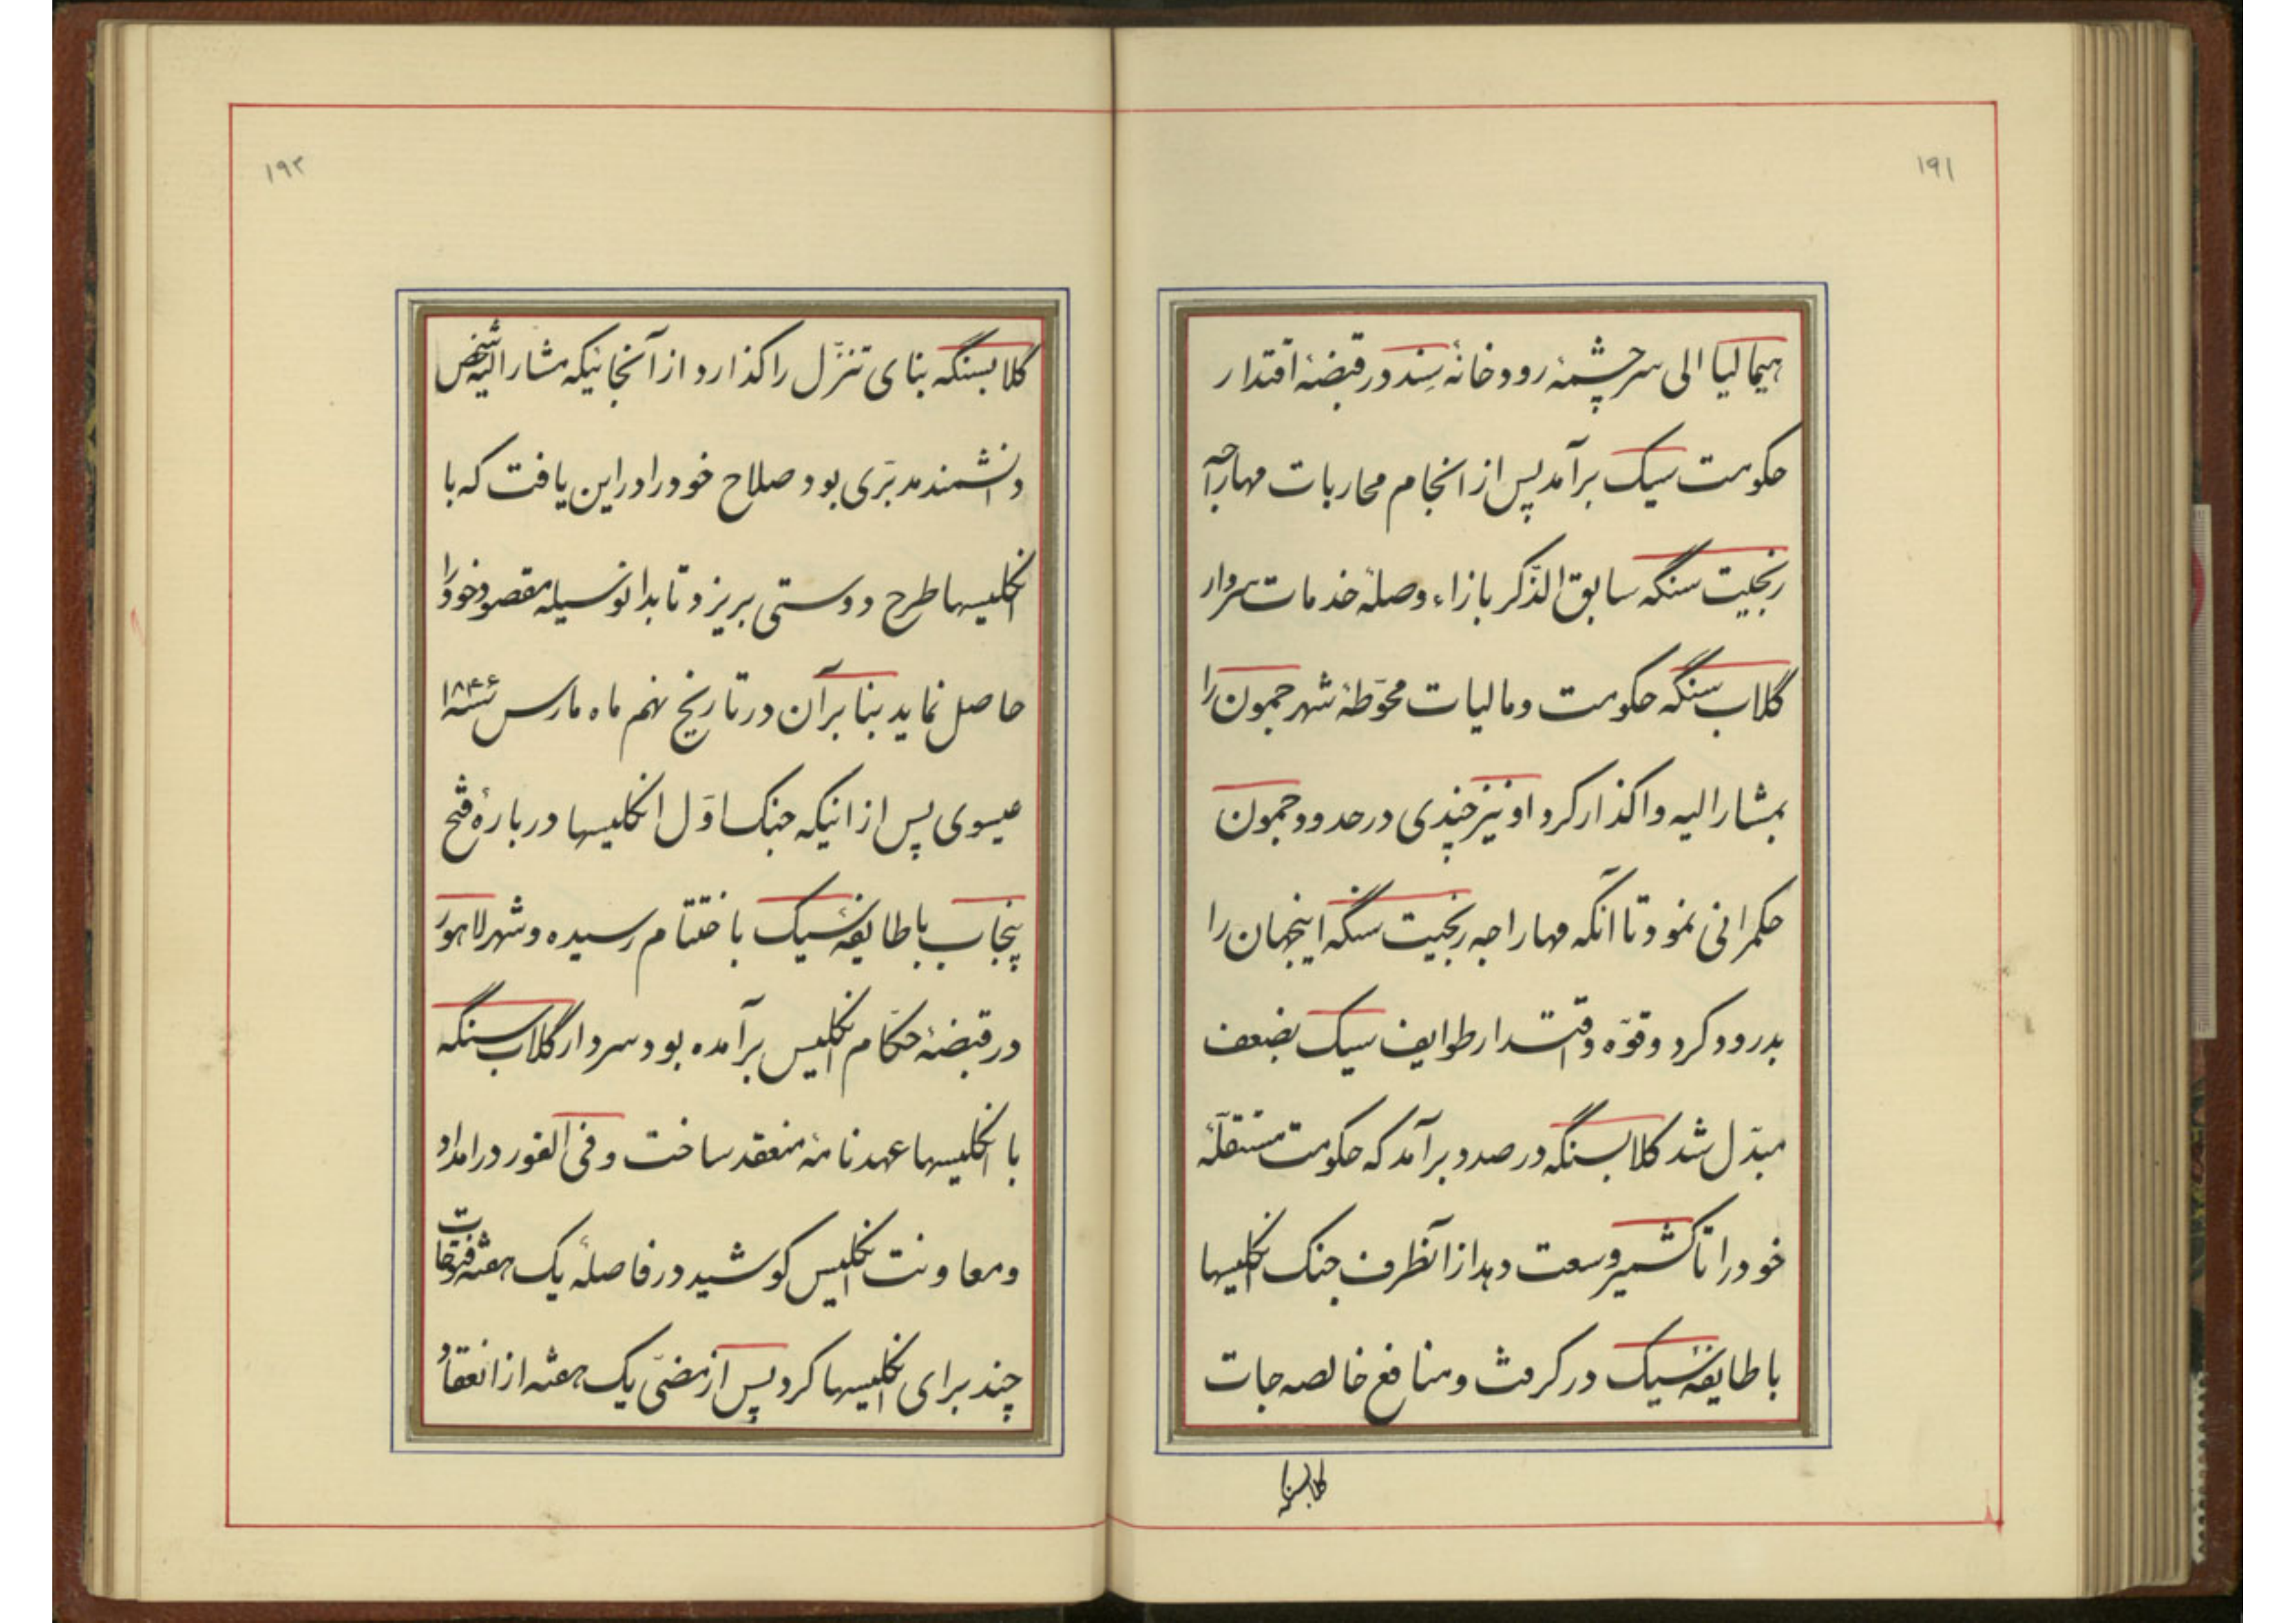 ۱۹۱
هیمالیا الی سرچشمهٔ رودخانهٔ سِند در قبضهٔ اقتدار
حکومت سیک برآمد پس از انجام محاربات مهاراجه
رنجیت سنگه سابق الذّکر بازاء وصلهٔ خدمات سردار
گلاب سنگه حکومت و مالیات محوّطهٔ شهر جمون را
بمشارالیه واکذار کرد او نیز چندی در حدود جمون
حکمرانی نمود تا آنکه مهاراجه رنجیت سنگه اینجهان را
بدرود کرد و قوّه و اقتدار طوایف سیک بضعف
مبدّل شد کلابسنگه در صدد برآمد که حکومت مستقلّهٔ
خود را تا کشمیر وسعت دهد از آنطرف جنک انکلیسها
با طایفهٔ سیک درکرفت و منافع خالصه جات
کلابسنکه
۱۹۲
کلابسنگه بنای تنزّل را کذارد و از آنجائیکه مشارالیه شخص
دانشمند مدبّری بود صلاح خود را در این یافت که با
انکلیسها طرح دوستی بریزد تا بدانوسیله مقصود خود را
حاصل نماید بنا برآن در تاریخ نهم ماه مارس سنه ۱۸۴۶
عیسوی پس از انیکه جنک اوّل انکلیسها دربارهٔ فتح
پنجاب با طایفهٔ سیک باختتام رسیده و شهر لاهور
در قبضهٔ حکّام انکلیس برآمده بود سردار گلاب سنگه
با انکلیسها عهدنامهٔ منعقد ساخت و فی الفور در امداد
و معاونت انکلیس کوشید در فاصلهٔ یک هفته فتوحات
چند برای انکلیسها کرد پس از مضیّ یک هفته از انعقاد